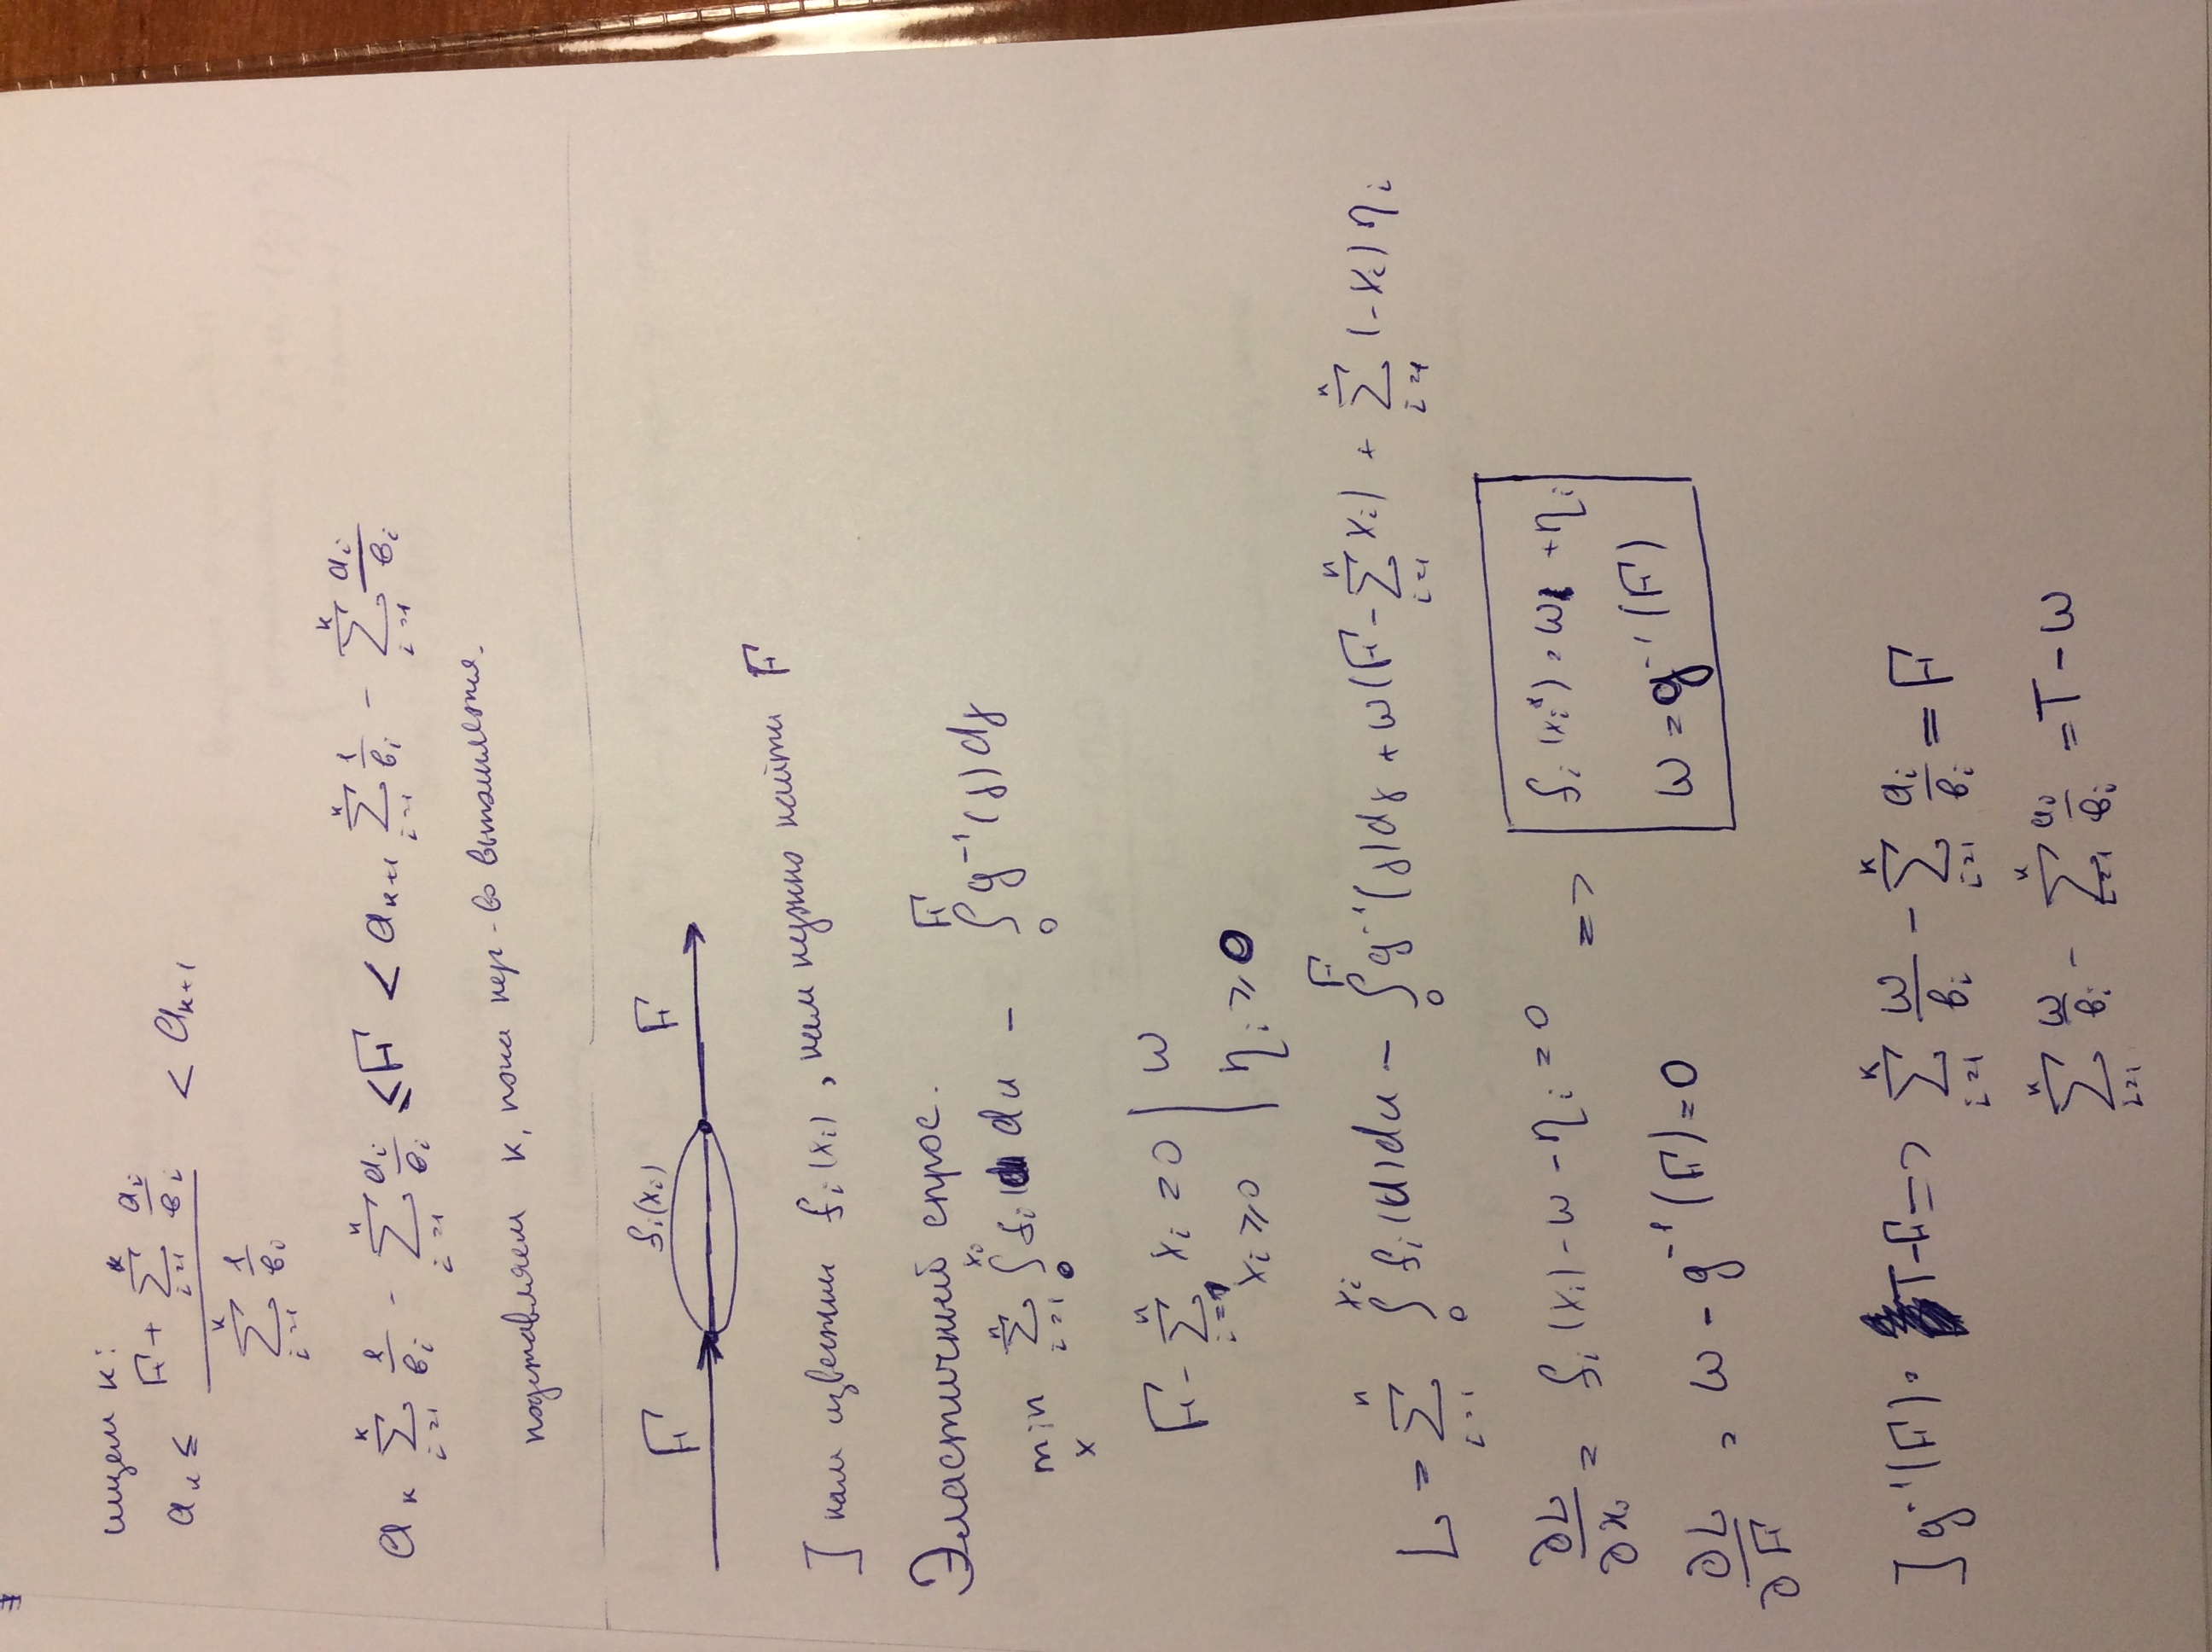 ищем к:
a_к ≤ (F + ∑_{i=1}^{к} a_i/b_i) / (∑_{i=1}^{к} 1/b_i) < a_{к+1}
a_к ∑_{i=1}^{к} 1/b_i - ∑_{i=1}^{к} a_i/b_i ≤ F < a_{к+1} ∑_{i=1}^{к} 1/b_i - ∑_{i=1}^{к} a_i/b_i
подставляем к, пока нер-во выполняется.
F f_i(x_i) F
] нам известны f_i(x_i), нам нужно найти F
Эластичный спрос.
min_x ∑_{i=1}^{n} ∫_0^{x_i} f_i(u) du - ∫_0^F g^{-1}(y) dy
F - ∑_{i=1}^{n} x_i = 0 | ω
x_i ≥ 0 | η_i ≥ 0
L = ∑_{i=1}^{n} ∫_0^{x_i} f_i(u) du - ∫_0^F g^{-1}(y) dy + ω(F - ∑_{i=1}^{n} x_i) + ∑_{i=1}^{n} (-x_i) η_i
∂L/∂x_i = f_i(x_i) - ω - η_i = 0 => f_i(x_i*) = ω + η_i
∂L/∂F = ω - g^{-1}(F) = 0 ω = g^{-1}(F)
] g^{-1}(F) = T-F => ∑_{i=1}^{к} ω/b_i - ∑_{i=1}^{к} a_i/b_i = F
∑_{i=1}^{к} ω/b_i - ∑_{i=1}^{к} a_i/b_i = T - ω